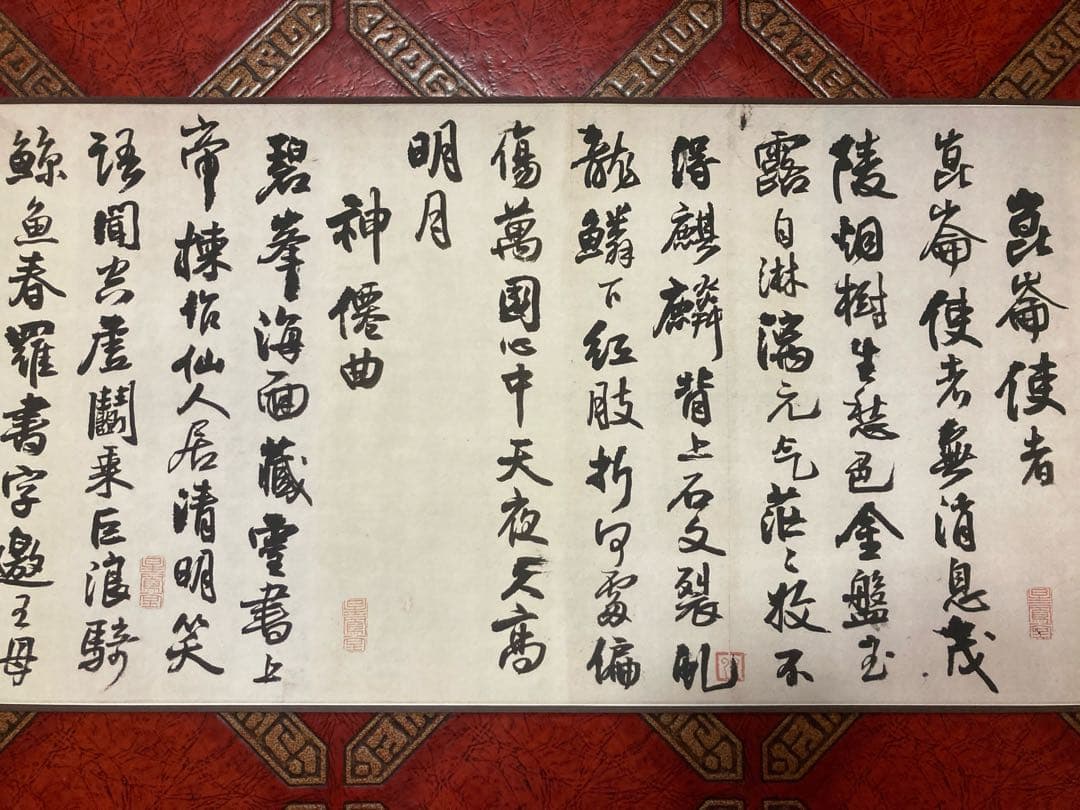 崑崙使者
崑崙使者無消息茂
陵烟樹生愁色金盤玉
露自淋漓元气茫〻收不
得麒麟背上石文裂虬
龍鱗下紅肢折何處偏
傷萬國心中天夜久高
明月
神僊曲
碧峯海面藏靈書上
帝揀作仙人居清明笑
語聞空虛鬭乘巨浪騎
鯨魚春羅書字邀王母